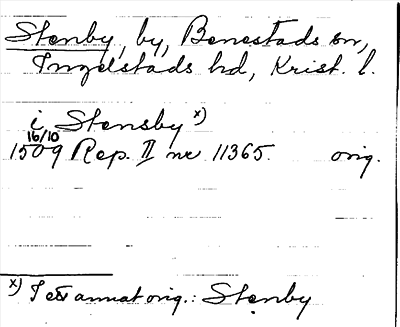 Stenby, by, Benestads sn,
Ingelstads hd, Krist. l.
i Stensby x)
16/10
1509 Rep. II nr 11365. orig.
x) I ett annat orig.: Stenby